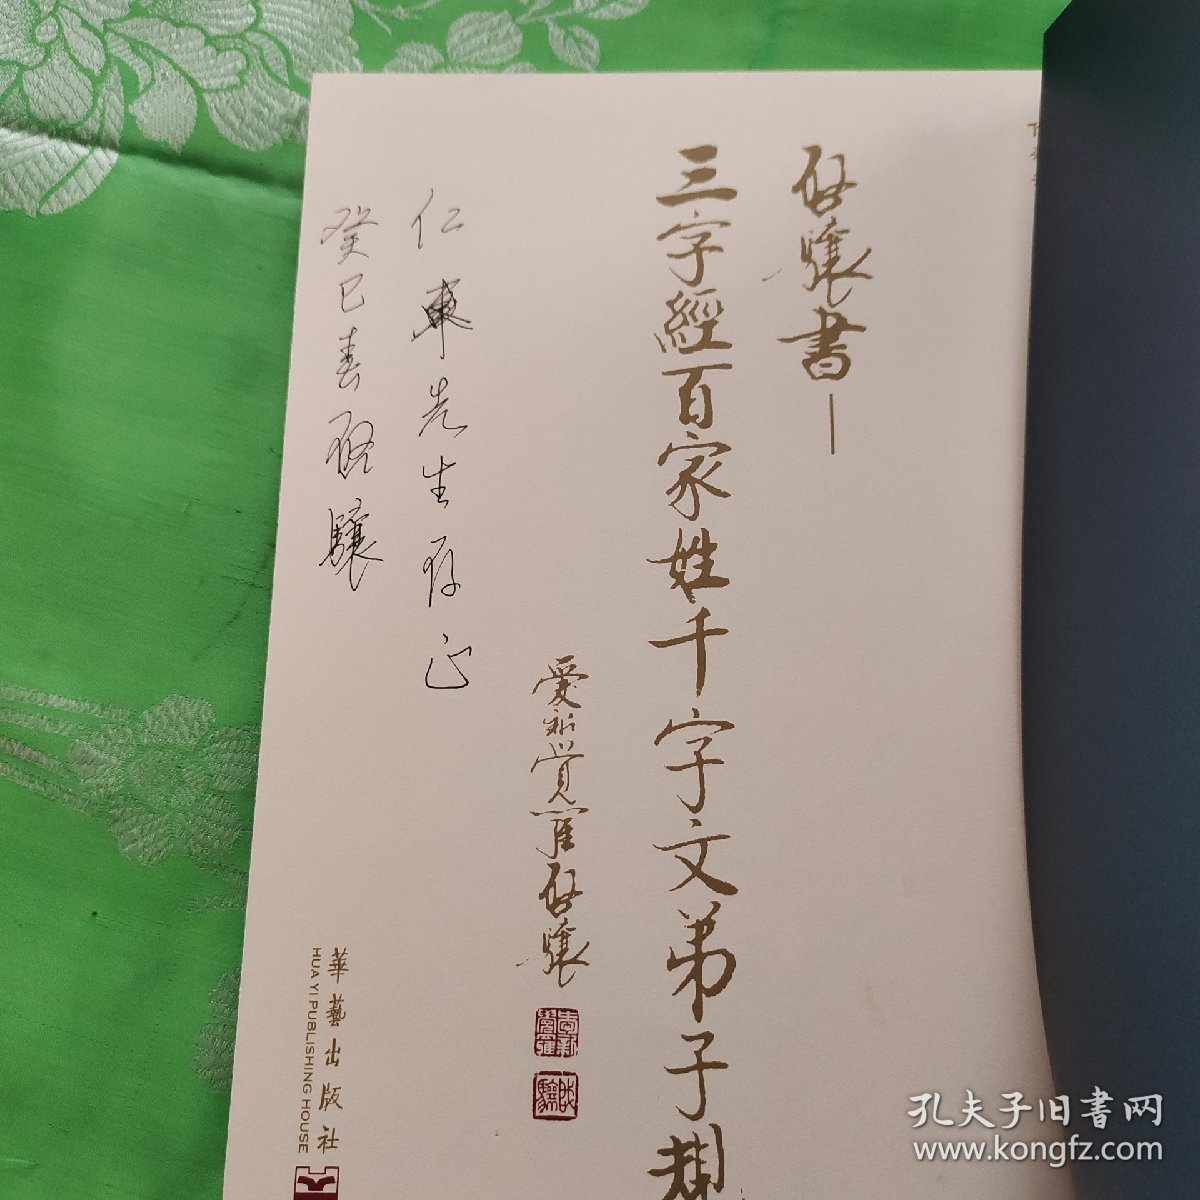 启骧书—
三字經百家姓千字文弟子規
愛新觉羅启骧
仁東先生存正
癸巳春启骧
華藝出版社
HUA YI PUBLISHING HOUSE
孔夫子旧书网
www.kongfz.com